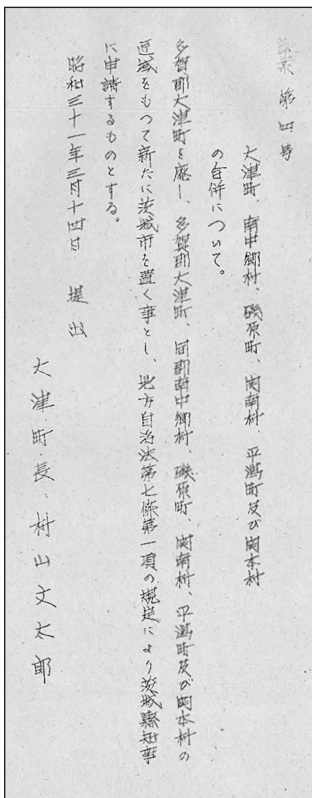 議案第四号
大津町、南中郷村、磯原町、関南村、平潟町及び関本村
の合併について。
多賀郡大津町を廃し、多賀郡大津町、同郡南中郷村、磯原町、関南村、平潟町及び関本村の
区域をもつて新たに茨城市を置く事とし、地方自治法第七條第一項の規定により茨城縣知事
に申請するものとする。
昭和三十一年三月十四日　提出
大津町長　村山文太郎